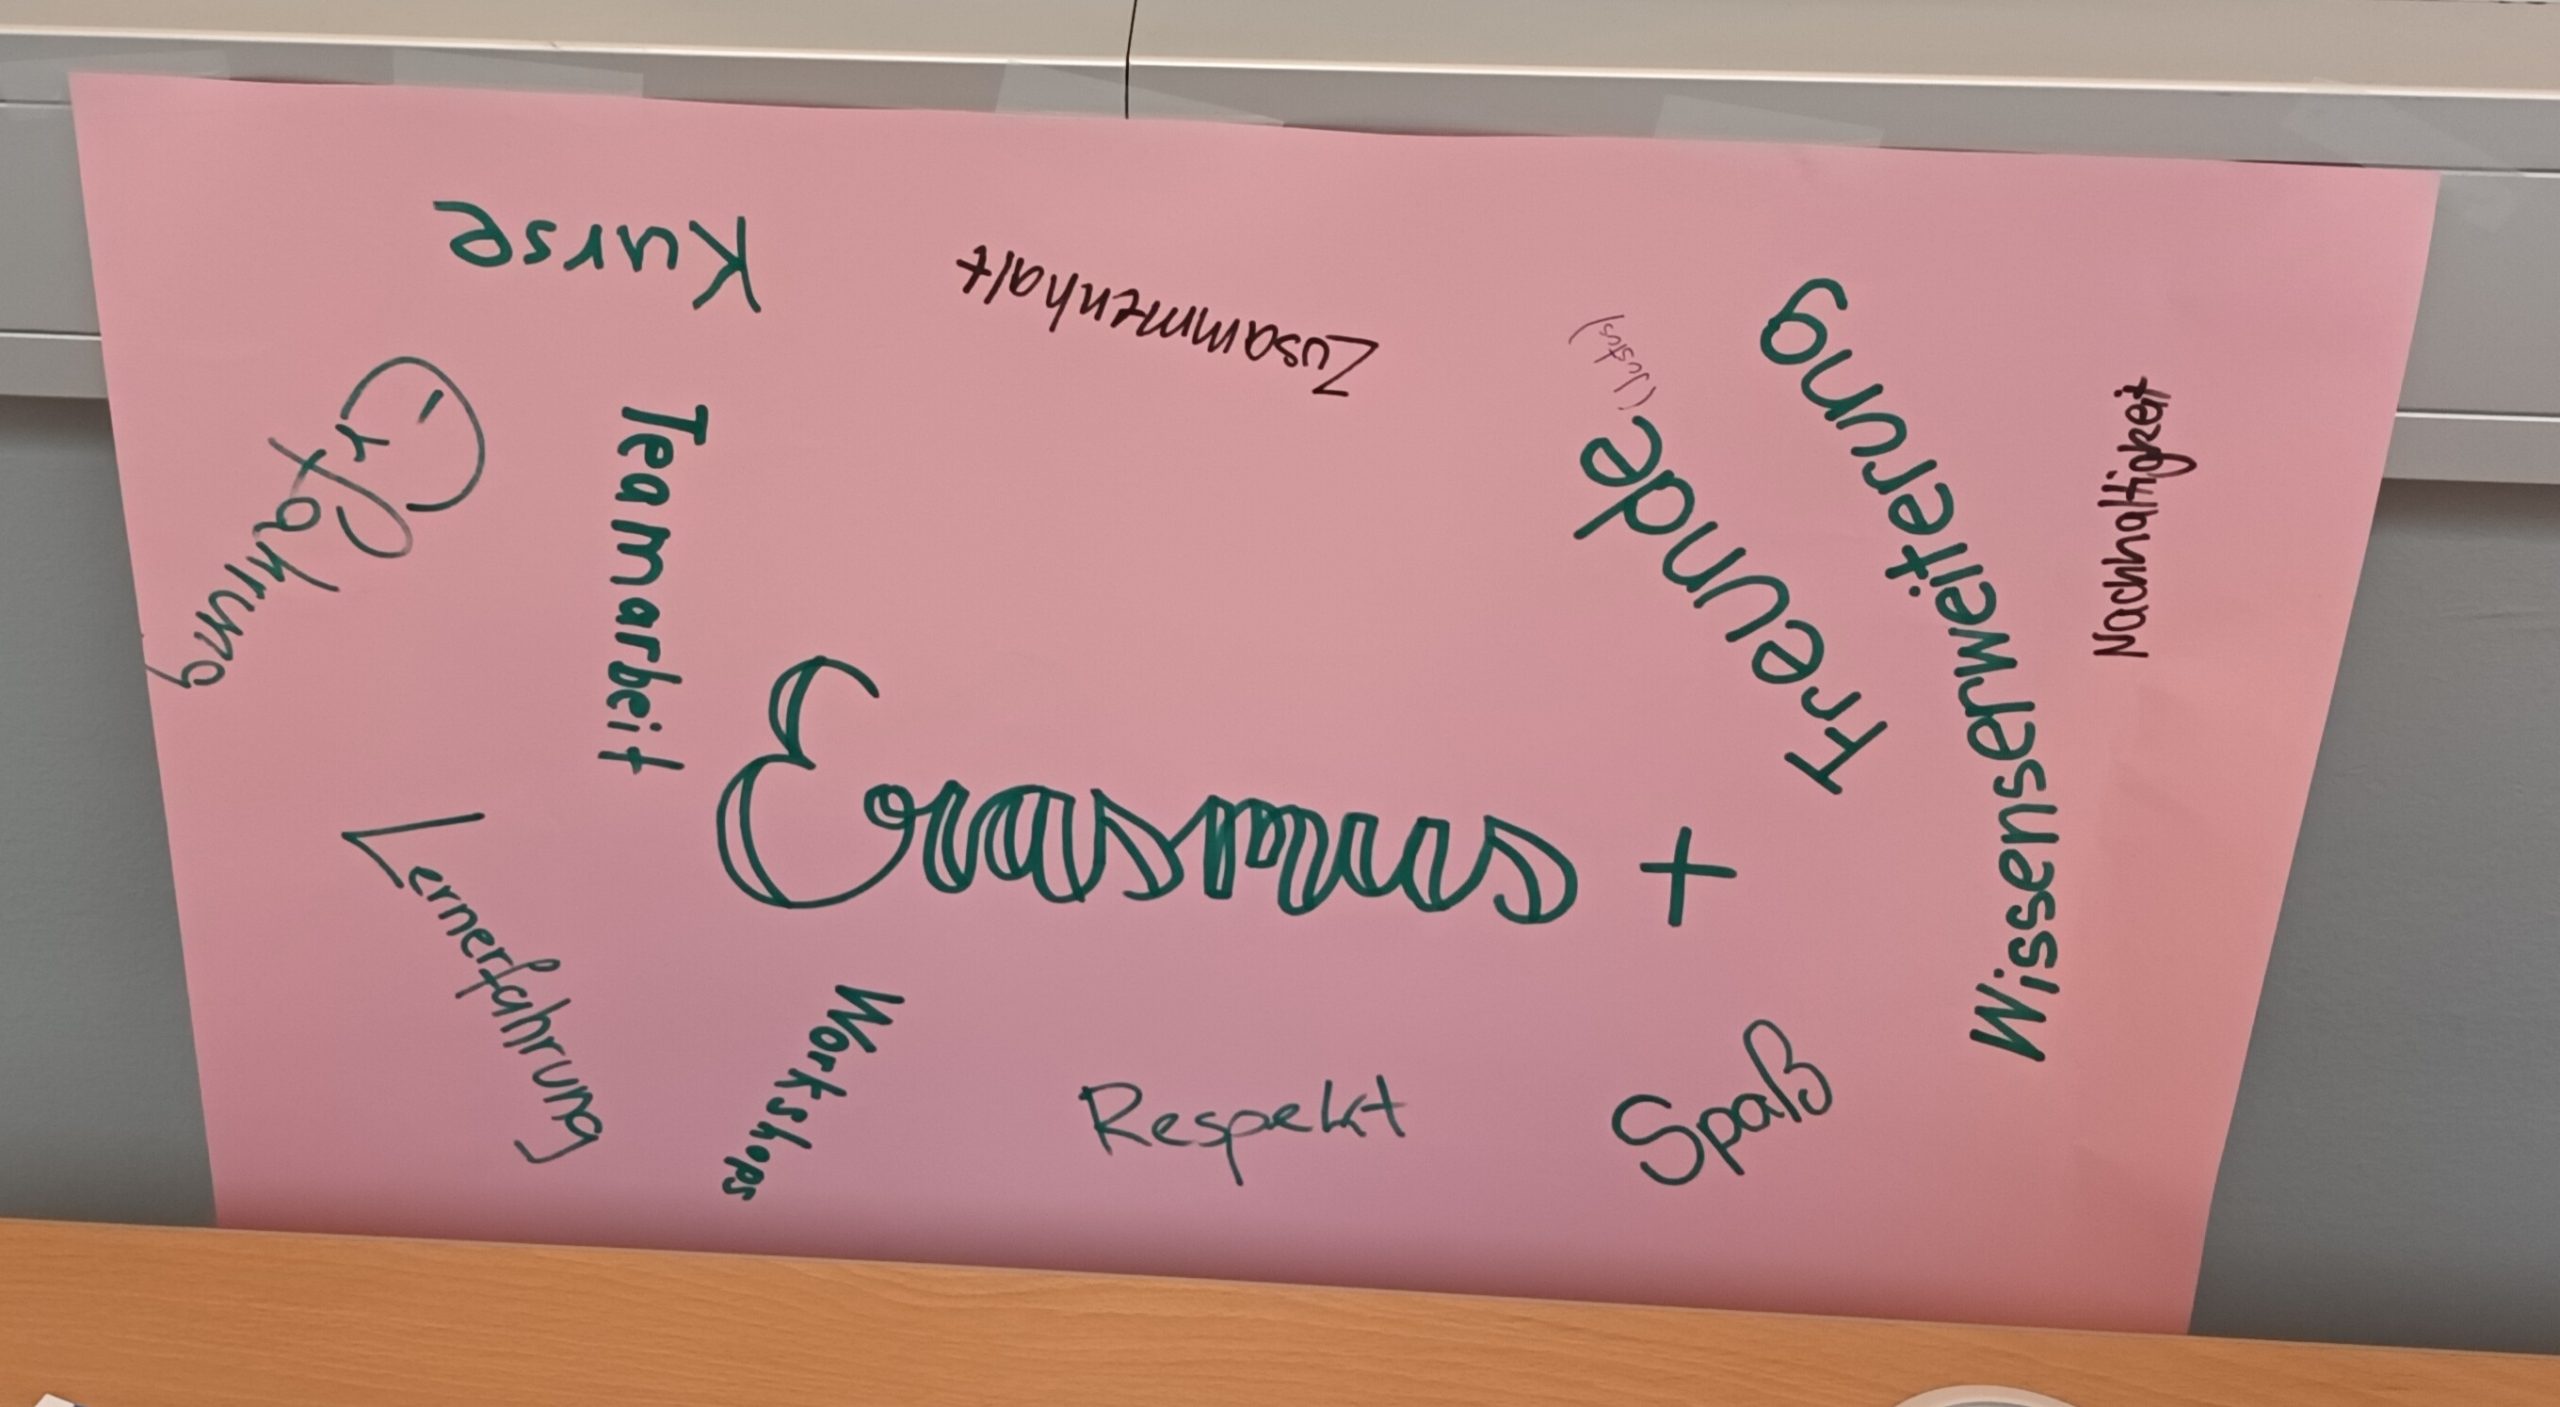 Kurse
Zusammenhalt
(Justus)
Freunde
Wissenserweiterung
Nachhaltigkeit
Erfahrung
Teamarbeit
Erasmus +
Lernerfahrung
Workshops
Respekt
Spaß